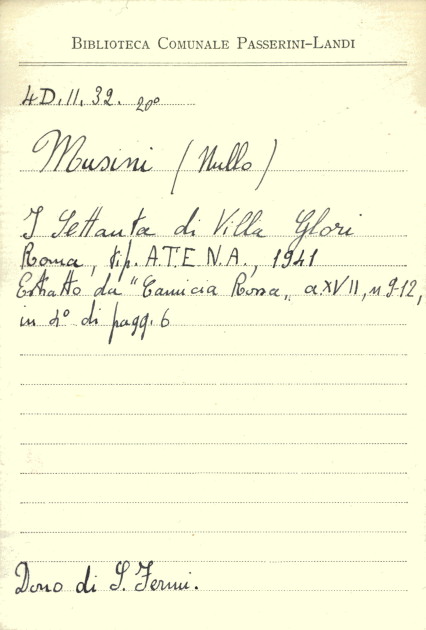 BIBLIOTECA COMUNALE PASSERINI-LANDI
4D.II.32. 20º
Musini (Nullo)
I Settanta di Villa Glori
Roma, tip. A.T.E.N.A., 1941
Estratto da "Camicia Rossa„ a.XVII, n 9-12,
in 4º di pagg. 6
Dono di S. Fermi.